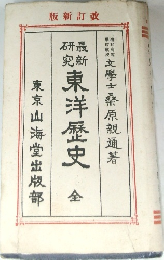 版新訂改
文學士 桑原親適著
最新
研究
東洋歷史 全
東京 山海堂出版部